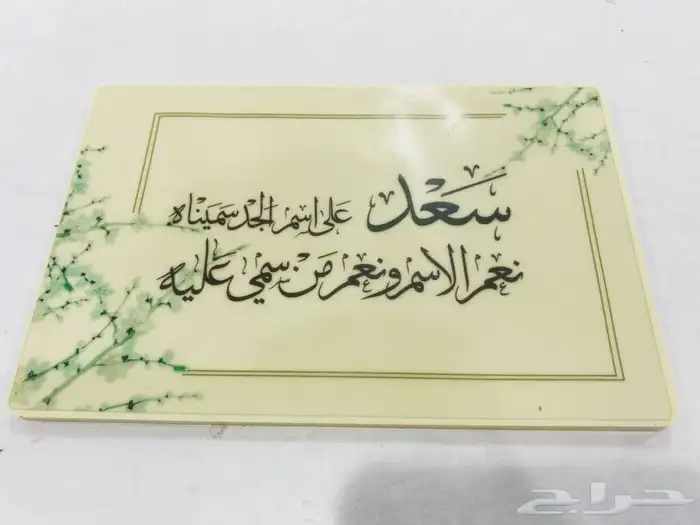 سَعْد على اسم الجد سميناه
نعم الاسم ونعم من سمي عليه
حراج